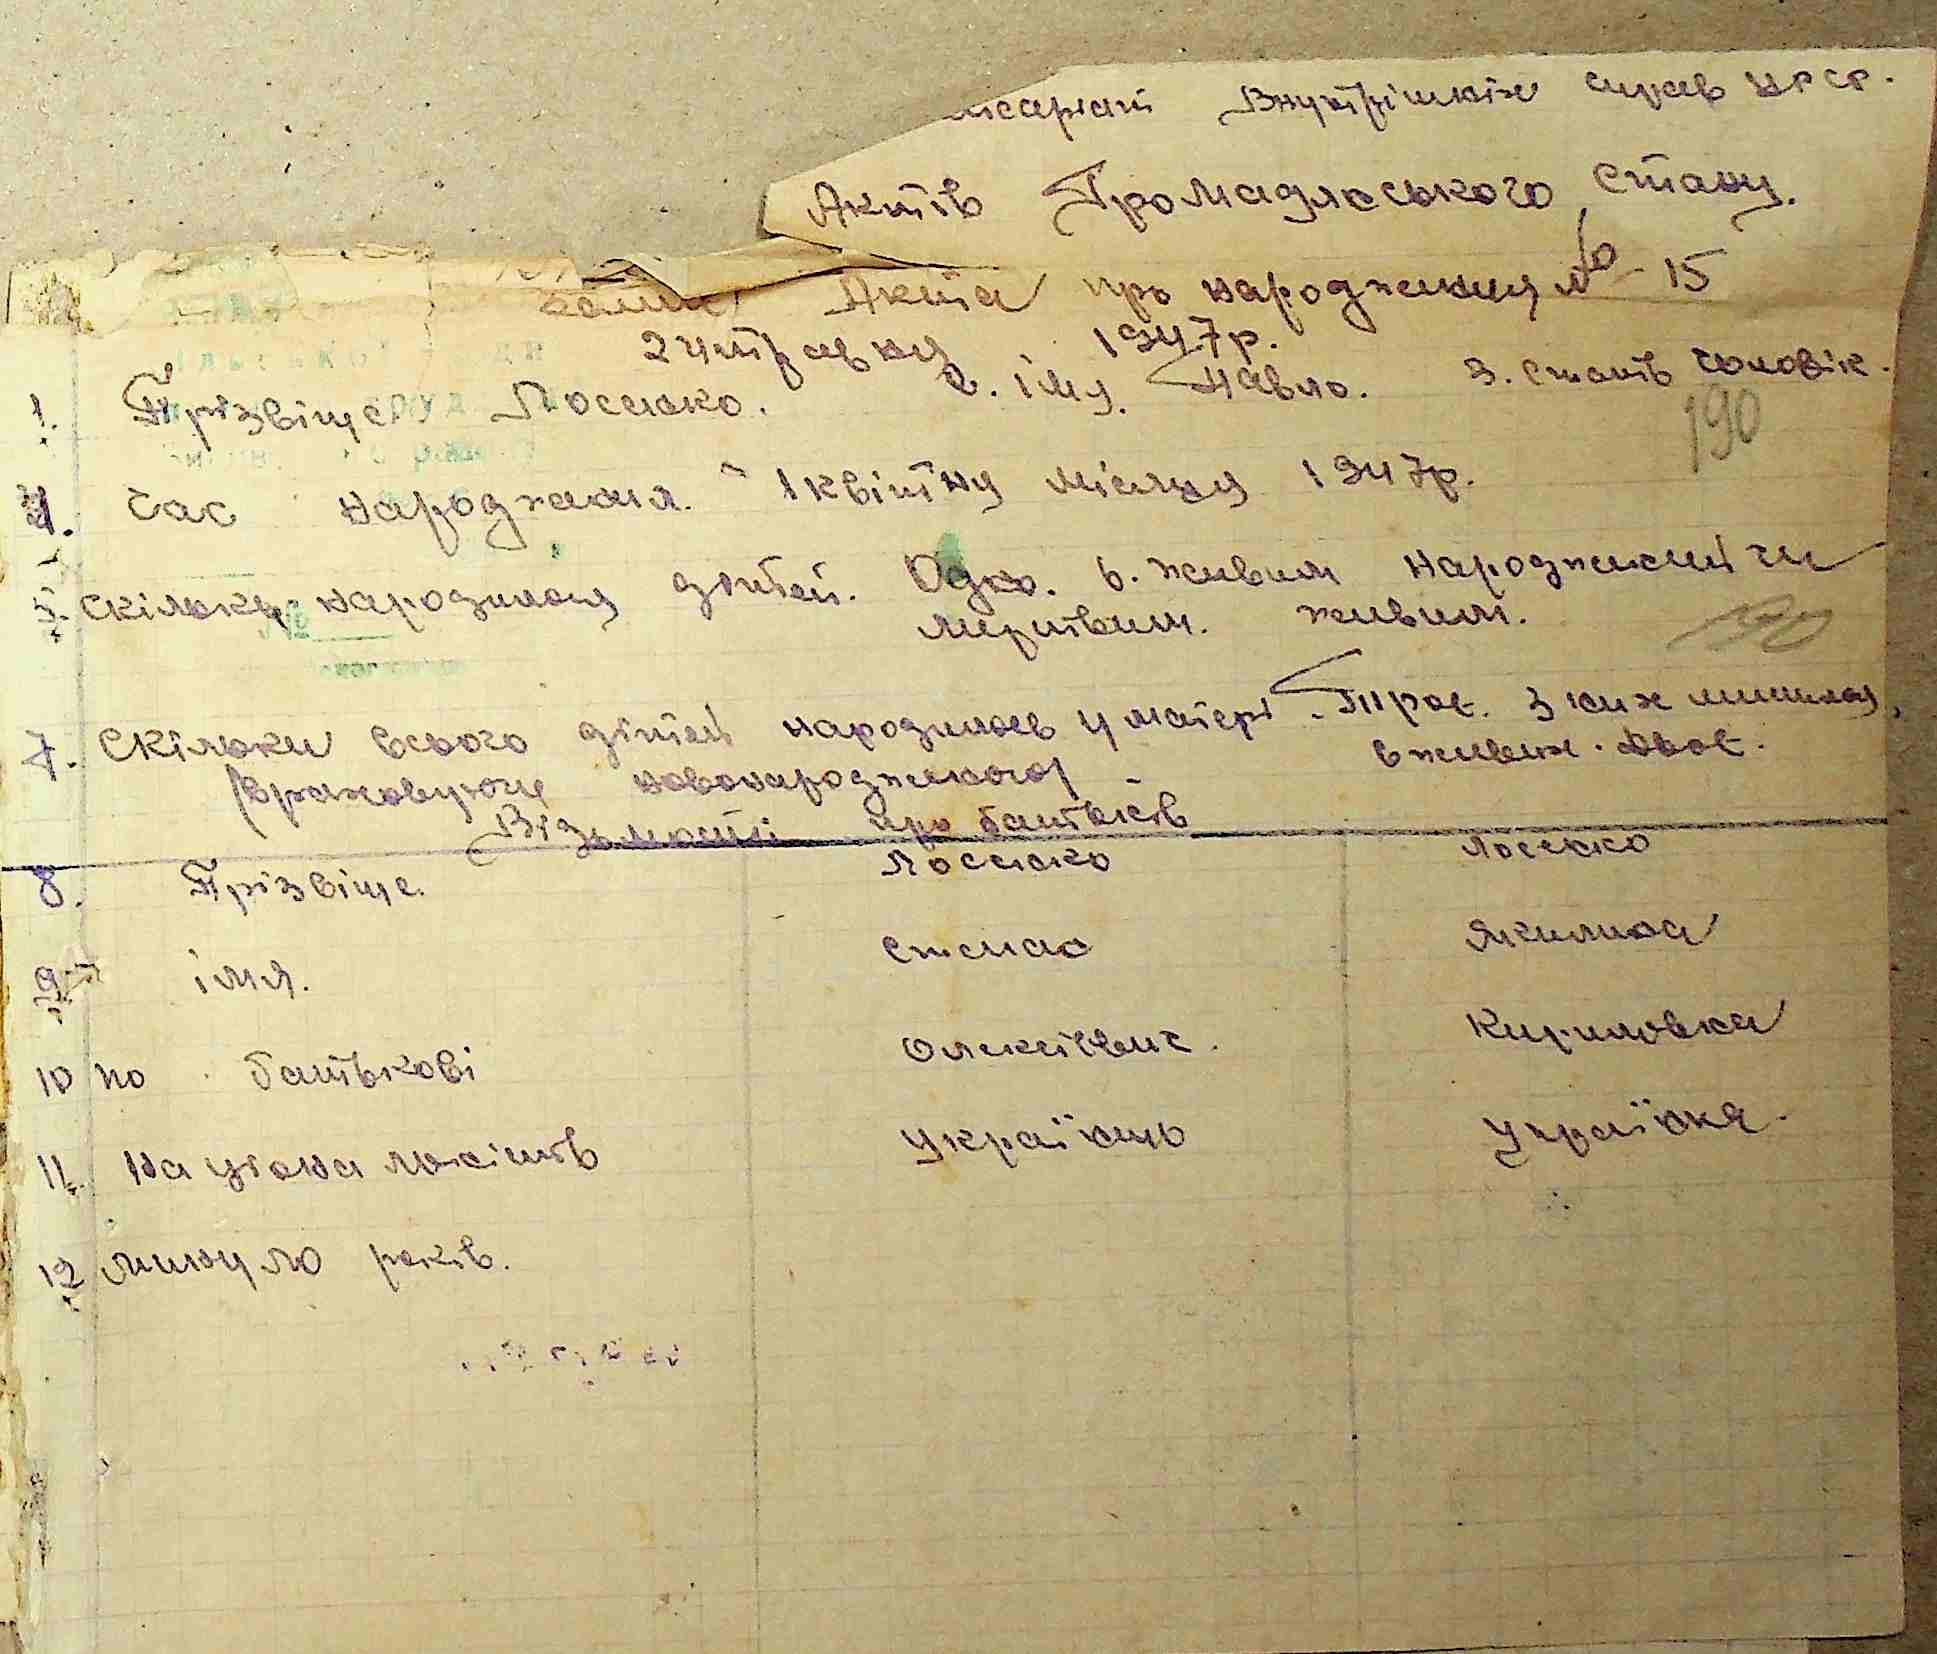 Внутрішніх справ УРСР.
Актів Громадяського Стану.
Акта про народження № 15
24 травня 1947р.
1. Прізвіще Лосенко. 2. імя. Павло. 3. стать чоловік.
190
4. Час народження. 1 квітня місяця 1947р.
5. Скільки народилося дітей. Одно. 6. живим народженый чи
мертвим. живим.
7. Скільки всього дітей народилось у матері. Троє. З них лишилося,
(враховуючи новонародженого) в живых. двоє.
Відомості про батьків
8. Прізвіще. Лосенко Лосенко
9. імя. Степан Якилина
10 по батькові Олексієвич. Кириловна
11. Національність Українець Українка.
12 минуло років.